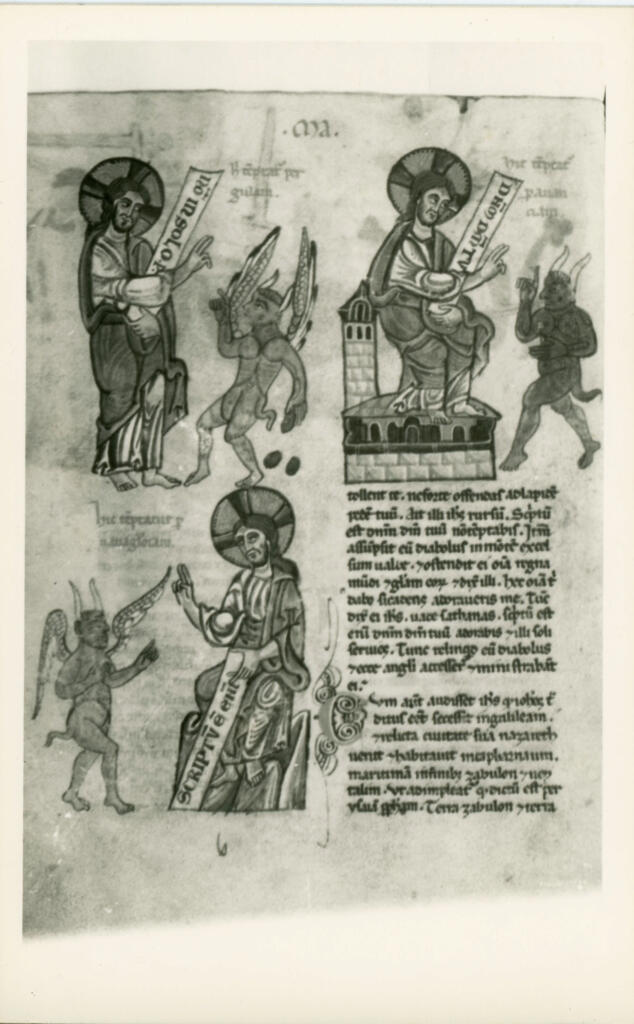 ·ma·
h̅ tēptat᷑ per
gulam.
NŌ IN SOLO P
hic tēptat᷑
p auari
DN̄M DM̄ TV
hic tēptatur p
SCRIPTV̄ Ē ENI
tollent te. ne forte offendas ad lapidē
pedē tuū. Ait illi ih̅s rursū. Sc̅ptū
est dn̅m dm̅ tuū nō tēptabis. Itm̅
assūpsit eū diabolus in mōtē excel
sum ualde. ⁊ ostendit ei oīa regna
mūdi ⁊ gl̅am eoꝝ ⁊ dix̅ illi. Hec oīa t̅
dabo si cadens adoraueris me. Tūc
dix̅ ei ih̅s. uade sathanas. sc̅ptū est
enī dn̅m dm̅ tuū adorabis ⁊ illi soli
seruies. Tunc relinqd̅ eū diabolus
⁊ ecce angl̅i accesser̅ ⁊ ministrabāt
ei.
Cum aūt audisset ih̅s q̇ iohes t̅
ditus eēt secessit in galileam.
⁊ relicta ciuitate sua nazareth
uenit ⁊ habitauit in capharnaum.
maritimā in finibꝫ zabulon ⁊ nep
talim. Vt adimpleat᷑ q̇ dictū est per
ysaiā ꝓph̅am. Terra zabulon ⁊ terra